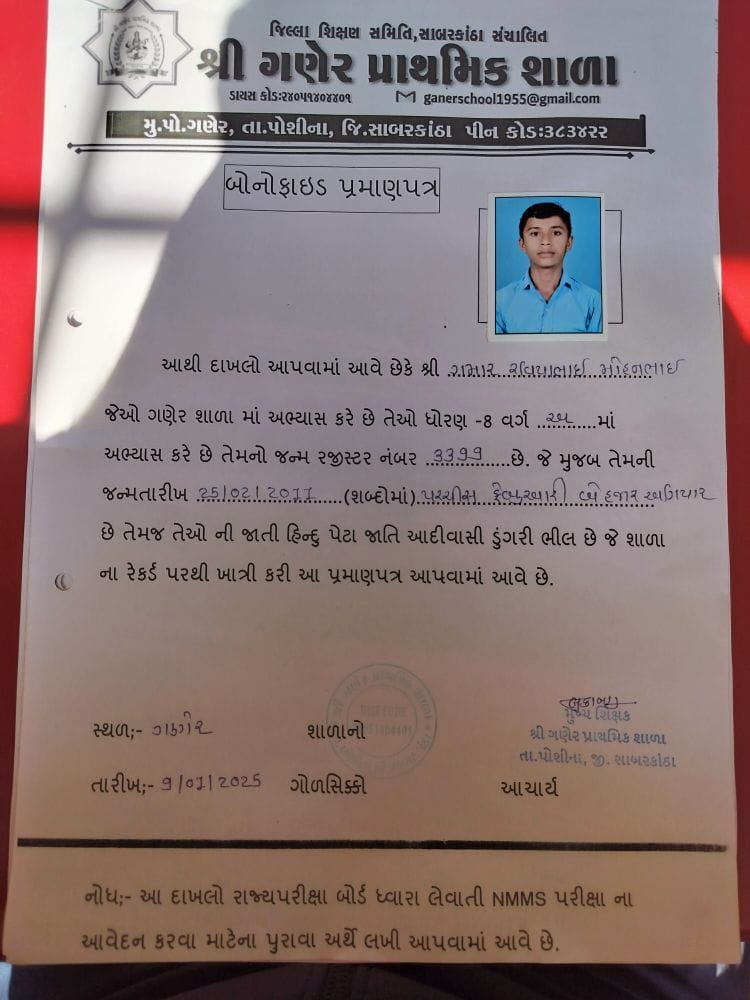 જિલ્લા શિક્ષણ સમિતિ,સાબરકાંઠા સંચાલિત
શ્રી ગણેર પ્રાથમિક શાળા
ડાયસ કોડઃ૨૪૦૫૧૪૦૪૪૦૧ ganerschool1955@gmail.com
મુ.પો.ગણેર, તા.પોશીના, જિ.સાબરકાંઠા પીન કોડઃ૩૮૩૪૨૨
બોનોફાઇડ પ્રમાણપત્ર
આથી દાખલો આપવામાં આવે છેકે શ્રી ગમાર રવિયાભાઈ મોહનભાઈ
જેઓ ગણેર શાળા માં અભ્યાસ કરે છે તેઓ ધોરણ -8 વર્ગ અ માં
અભ્યાસ કરે છે તેમનો જન્મ રજીસ્ટર નંબર ૩૩૧૧ છે. જે મુજબ તેમની
જન્મતારીખ 25/02/2011 (શબ્દોમાં) પચ્ચીસ ફેબ્રુઆરી બે હજાર અગિયાર
છે તેમજ તેઓ ની જાતી હિન્દુ પેટા જાતિ આદીવાસી ડુંગરી ભીલ છે જે શાળા
ના રેકર્ડ પરથી ખાત્રી કરી આ પ્રમાણપત્ર આપવામાં આવે છે.
મુખ્ય શિક્ષક
સ્થળ;- ગણેર શાળાનો શ્રી ગણેર પ્રાથમિક શાળા
તા.પોશીના, જી. સાબરકાંઠા
તારીખ;- 9/01/2025 ગોળસિક્કો આચાર્ય
નોધ;- આ દાખલો રાજ્યપરીક્ષા બોર્ડ ધ્વારા લેવાતી NMMS પરીક્ષા ના
આવેદન કરવા માટેના પુરાવા અર્થે લખી આપવામાં આવે છે.